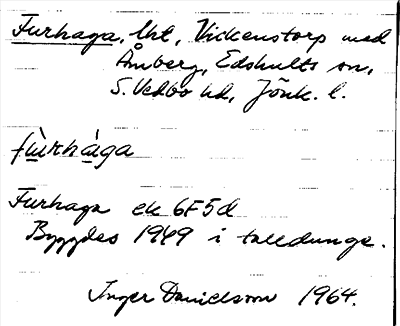 Furhaga, lht, Vickenstorp med
Åmberg, Edshults sn,
S. Vedbo hd, Jönk. l.
fùrhàga
Furhaga ek 6F5d
Byggdes 1949 i talldunge.
Inger Danielsson 1964.